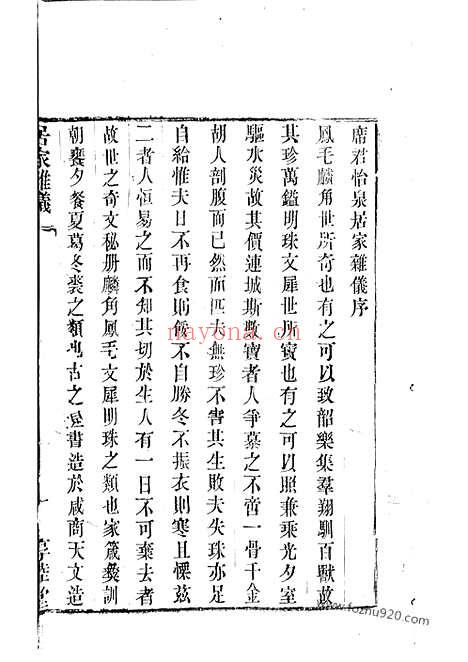 席君怡泉居家雜儀序
鳳毛麟角世所奇也有之可以致韶樂集羣翔馴百獸故
其珍萬鎰明珠文犀世所寶也有之可以照兼乘光夕室
驅水災故其價連城斯數寶者人爭慕之不啻一骨千金
胡人剖腹而已然而匹夫無珍不害其生敗夫失珠亦足
自給惟夫日不再食則餒不自勝冬不振衣則寒且慄茲
二者人恒易之而不知其切於生人有一日不可棄去者
故世之奇文秘册麟角鳳毛文犀明珠之類也家箴彝訓
朝饔夕餐夏葛冬裘之類也古之 書造於咸商天文造
居家雜儀
一
享 堂
nayona.cn
www.fozhu920.com